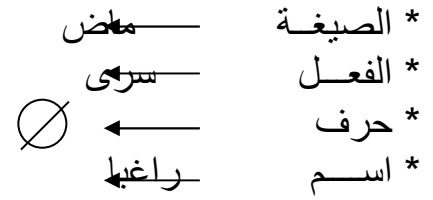 * الصيغــة ماض
* الفعــل سرى
* حرف ∅
* اســـم راغبا